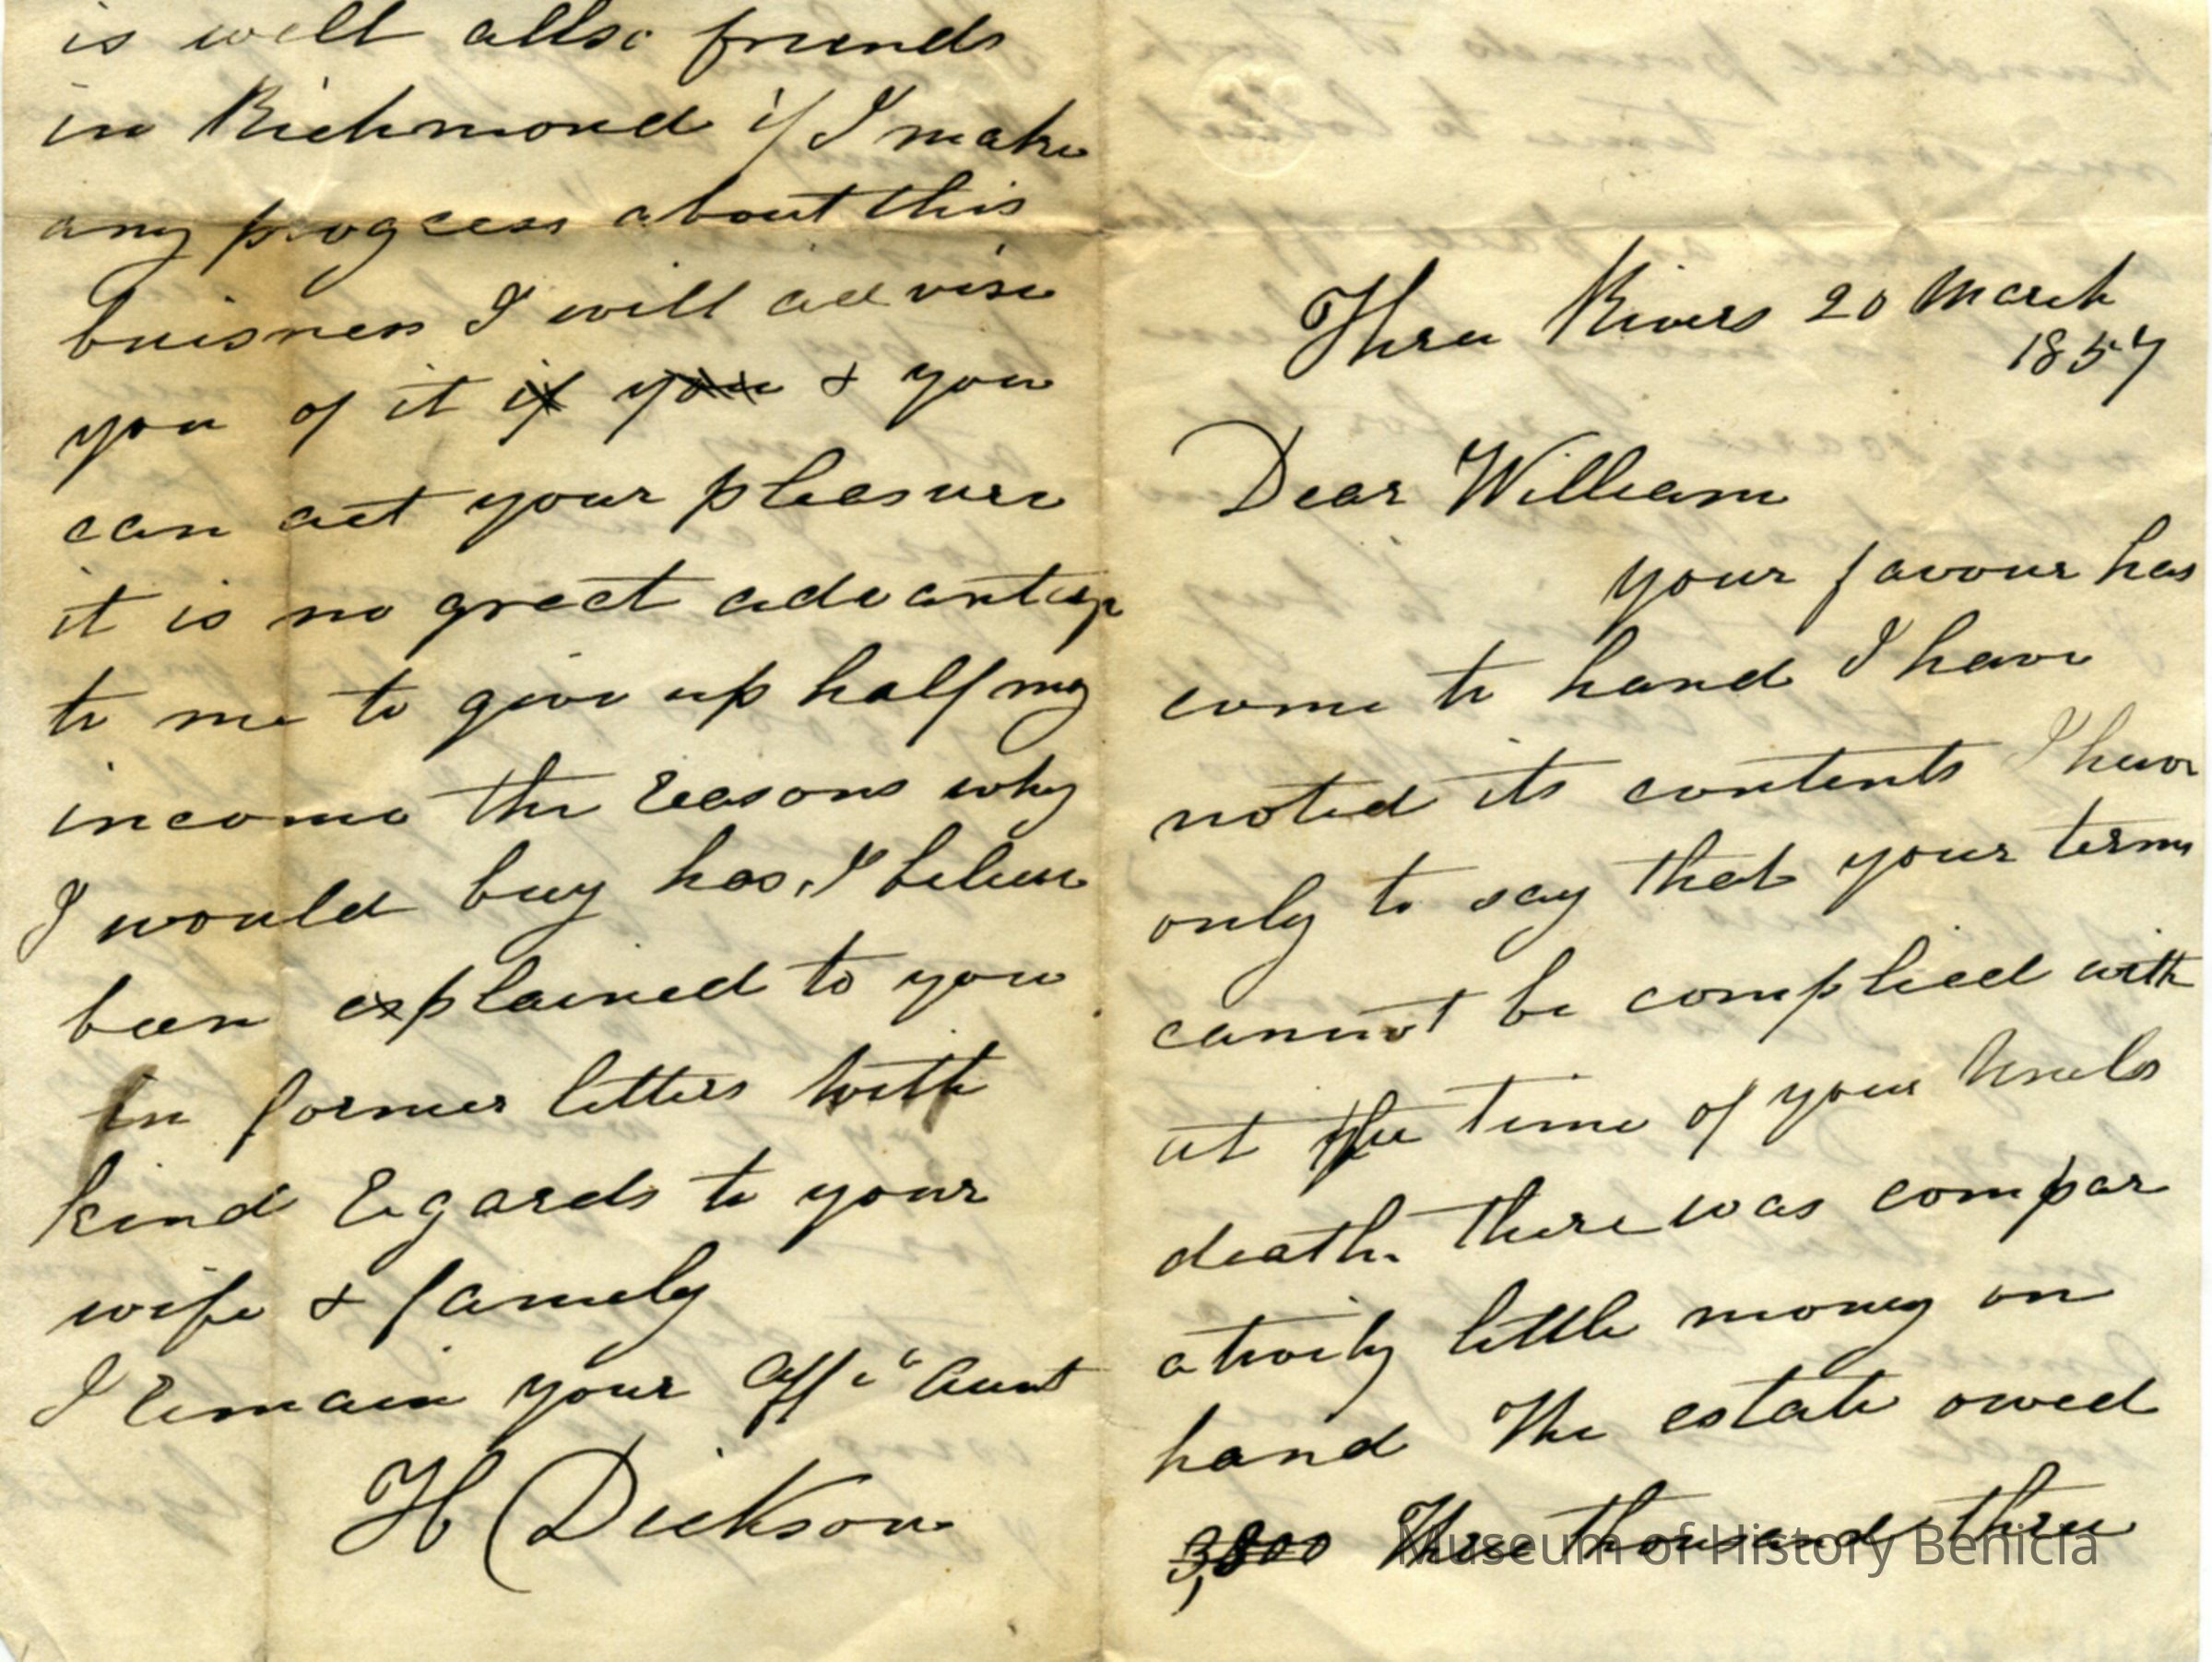 Three Rivers 20 March
1857
Dear William
your favour has
come to hand I have
noted its contents I have
only to say that your terms
cannot be complied with
at the time of your Uncles
death. there was compar
ativily little money on
hand The estate owed
3,800 Three thousand three
is well allso friends
in Richmond if I make
any progress about this
buisness I will advise
you of it if you & you
can act your pleasure
it is no great advantage
to me to give up half my
income the reasons why
I would buy has, I believe
been explained to you
in former letters with
kind regards to your
wife & family
I remain your Aff Aunt
H Dickson
Museum of History Benicia